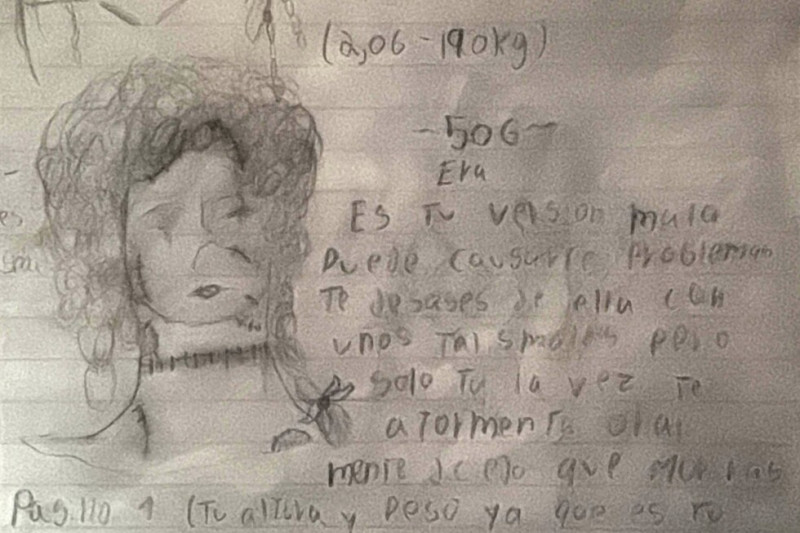 (2,06-190kg)
-506-
Era
Es Tu version mala
Puede causarte problemas
Te desases de ella con
unos Talismales pero
solo Tu la vez Te
aTormenTa
mente
Pasillo 1 (Tu alTura y peso ya que es Tu